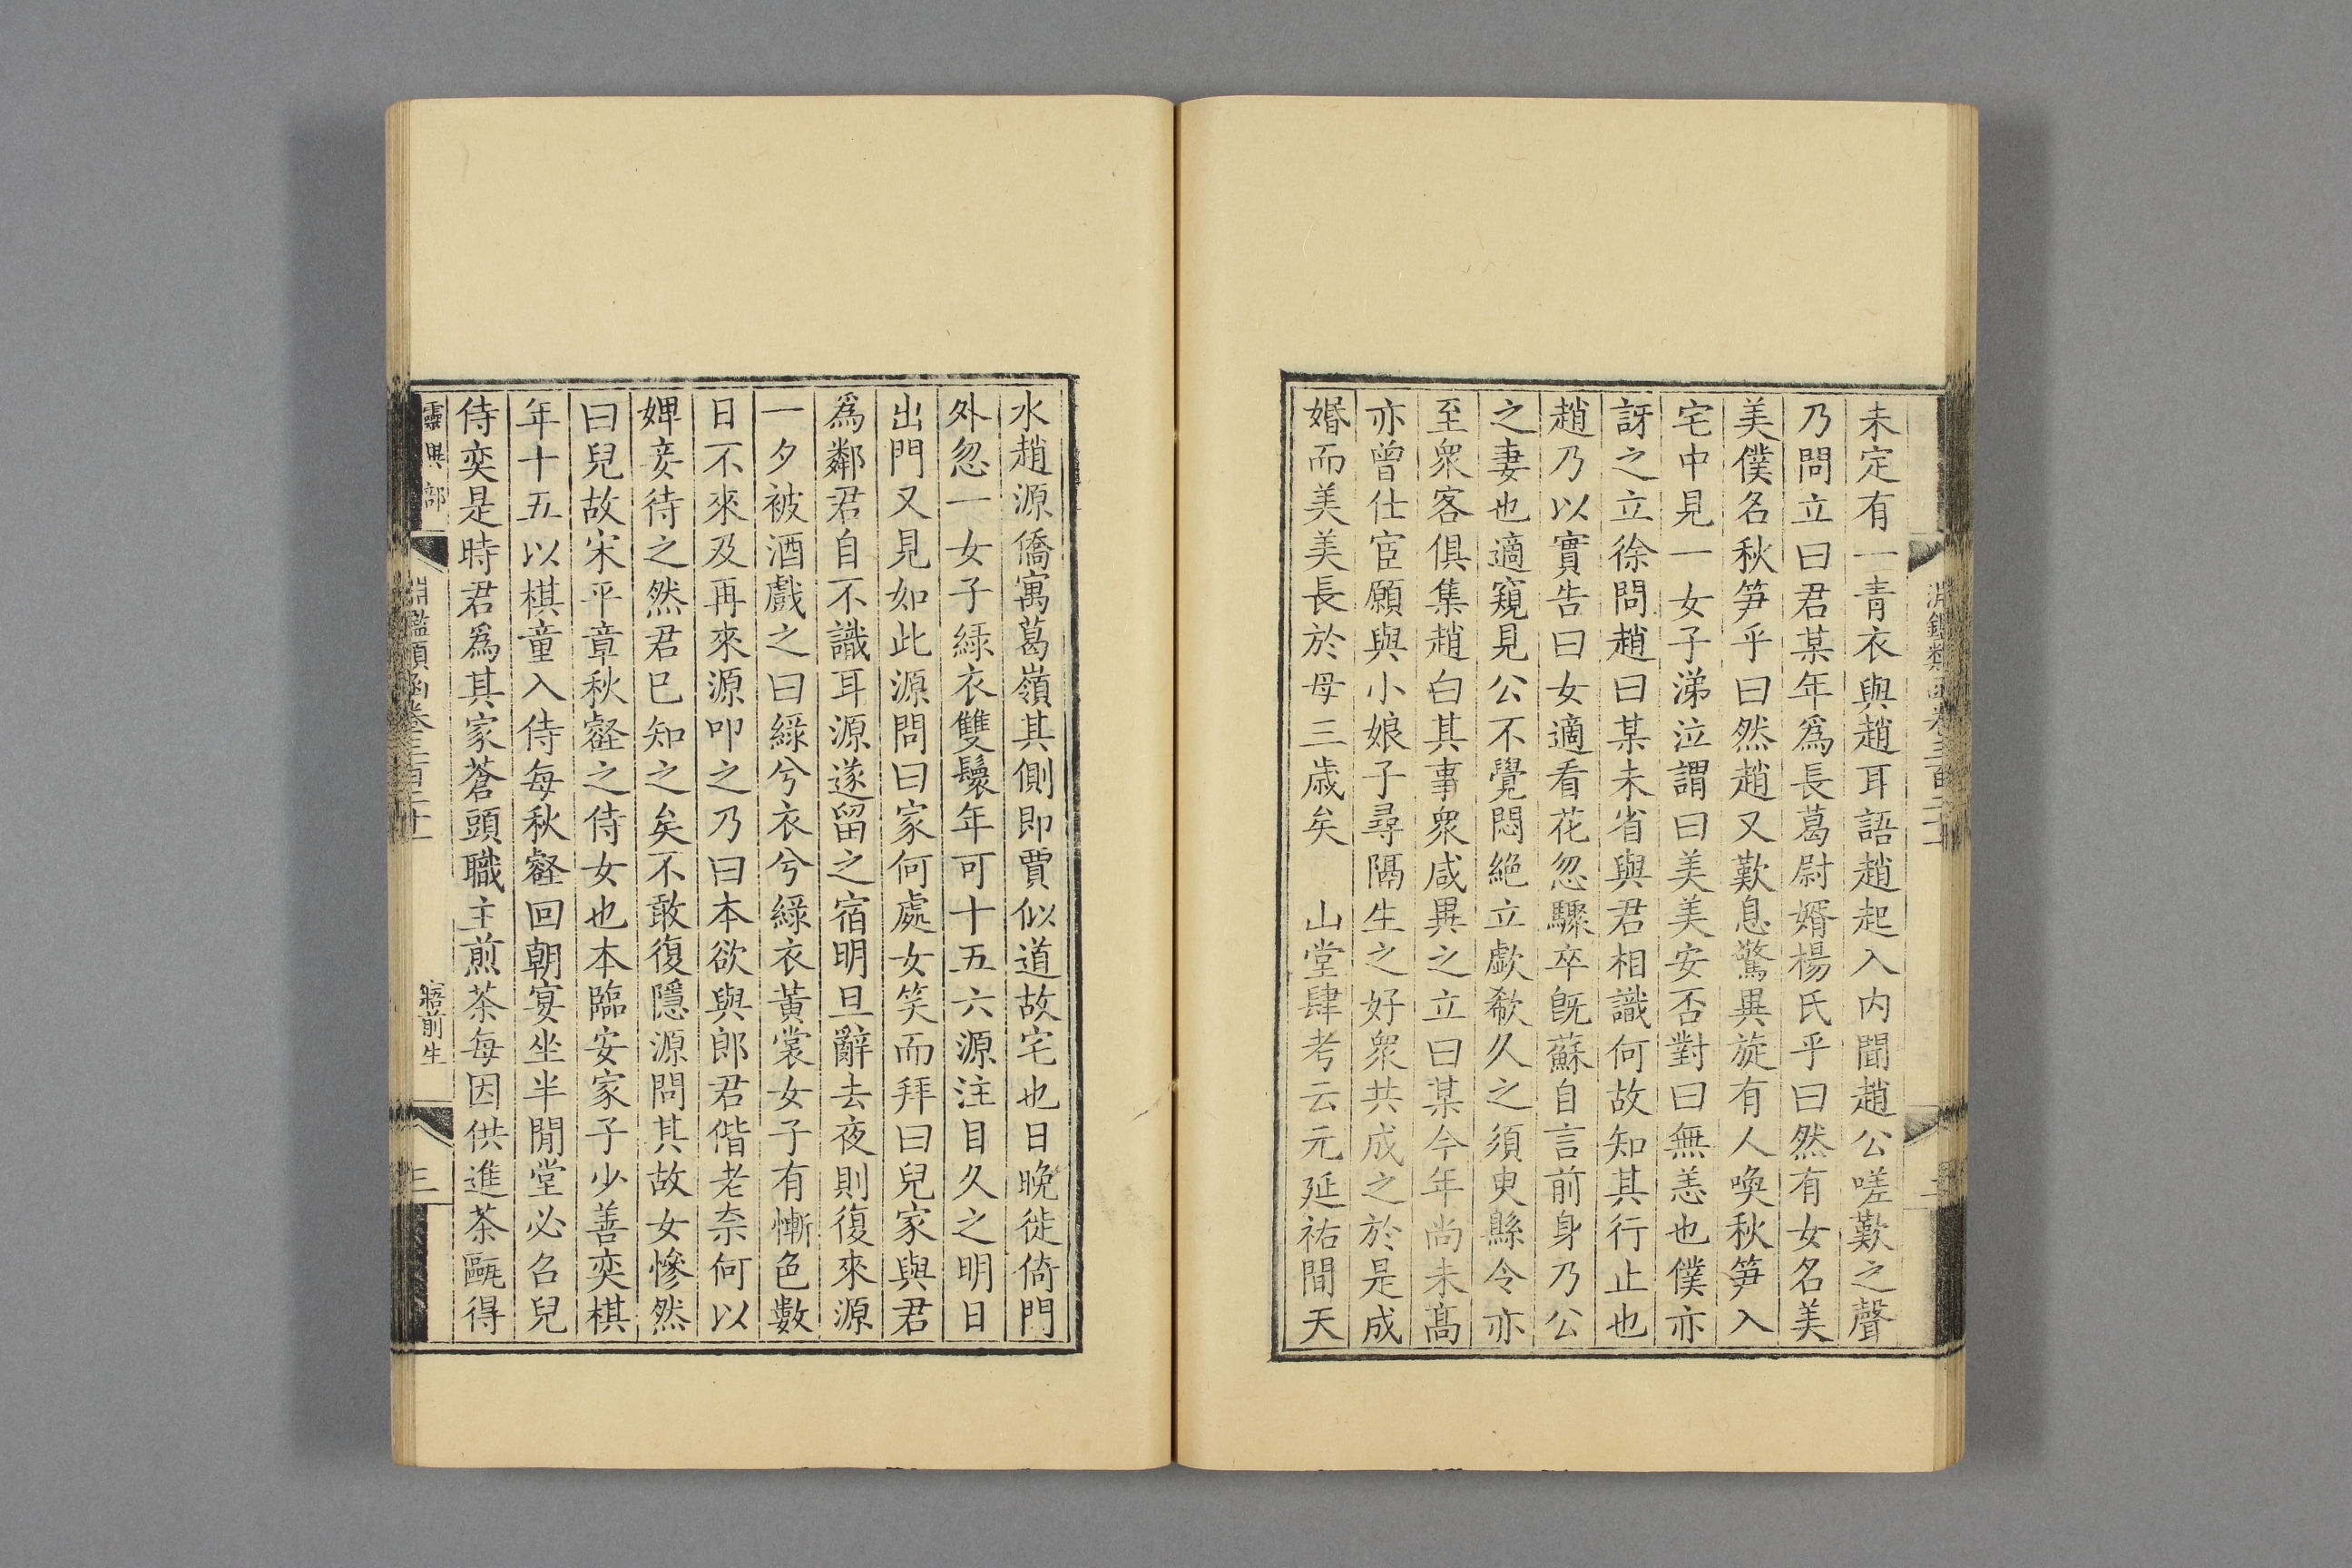 未定有一青衣與趙耳語趙起入内聞趙公嗟歎之聲
乃問立曰君某年爲長葛尉婿楊氏乎曰然有女名美
美僕名秋笋乎曰然趙又歎息驚異旋有人喚秋笋入
宅中見一女子涕泣謂曰美美安否對曰無恙也僕亦
訝之立徐問趙曰某未省與君相識何故知其行止也
趙乃以實告曰女適看花忽驟卒既蘇自言前身乃公
之妻也適窺見公不覺悶絶立歔欷久之須臾縣令亦
至衆客俱集趙白其事衆咸異之立曰某今年尚未髙
亦曾仕宦願與小娘子尋隔生之好衆共成之於是成
婚而美美長於母三歲矣　山堂肆考云元延祐間天
水趙源僑寓葛嶺其側即賈似道故宅也日晚徙倚門
外忽一女子緑衣雙鬟年可十五六源注目久之明日
出門又見如此源問曰家何處女笑而拜曰兒家與君
爲鄰君自不識耳源遂留之宿明旦辭去夜則復來源
一夕被酒戲之曰緑兮衣兮緑衣黃裳女子有慚色數
日不來及再來源叩之乃曰本欲與郎君偕老奈何以
婢妾待之然君已知之矣不敢復隱源問其故女慘然
曰兒故宋平章秋壑之侍女也本臨安家子少善奕棋
年十五以棋童入侍每秋壑回朝宴坐半閒堂必召兒
侍奕是時君爲其家蒼頭職主煎茶每因供進茶甌得
靈異部
淵鑑類函卷三百二十一
寤前生
三